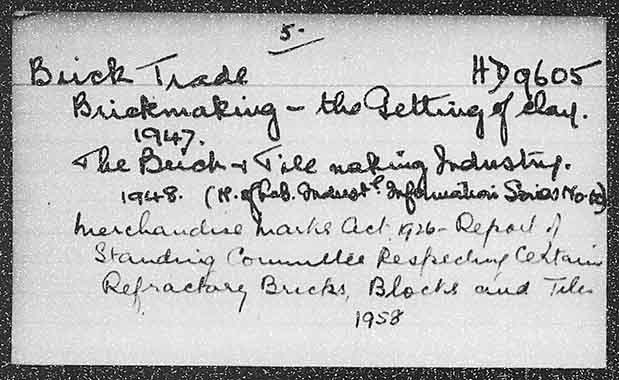 5.
Brick Trade HD9605
Brickmaking – the Getting of clay.
1947.
The Brick & Tile making Industry.
1948. (M. of Lab. Industl Information Series No.
Merchandise Marks Act 1926 – Report of
Standing Committee Respecting Certain
Refractory Bricks, Blocks and Tiles
1958